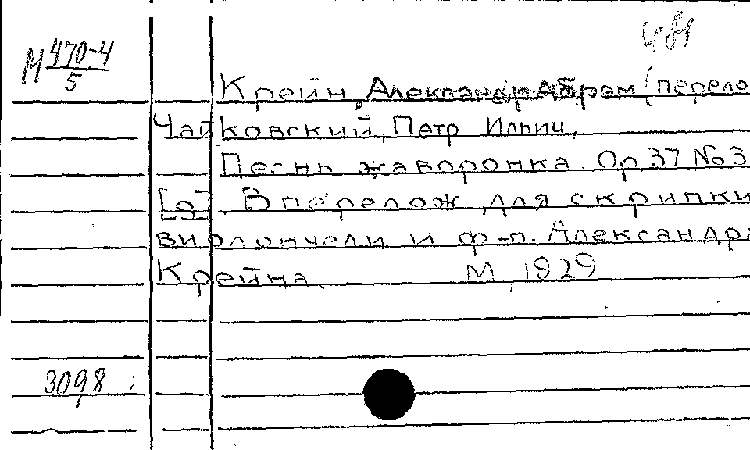 М 470-4
5
Крейн, Александр Абрам (перело
Чайковский, Петр Ильич.
Песнь жаворонка. Op 37 № 3
[a]. В перелож. для скрипки
виолончели и ф-п. Александра
Крейна. М, 1929
3098